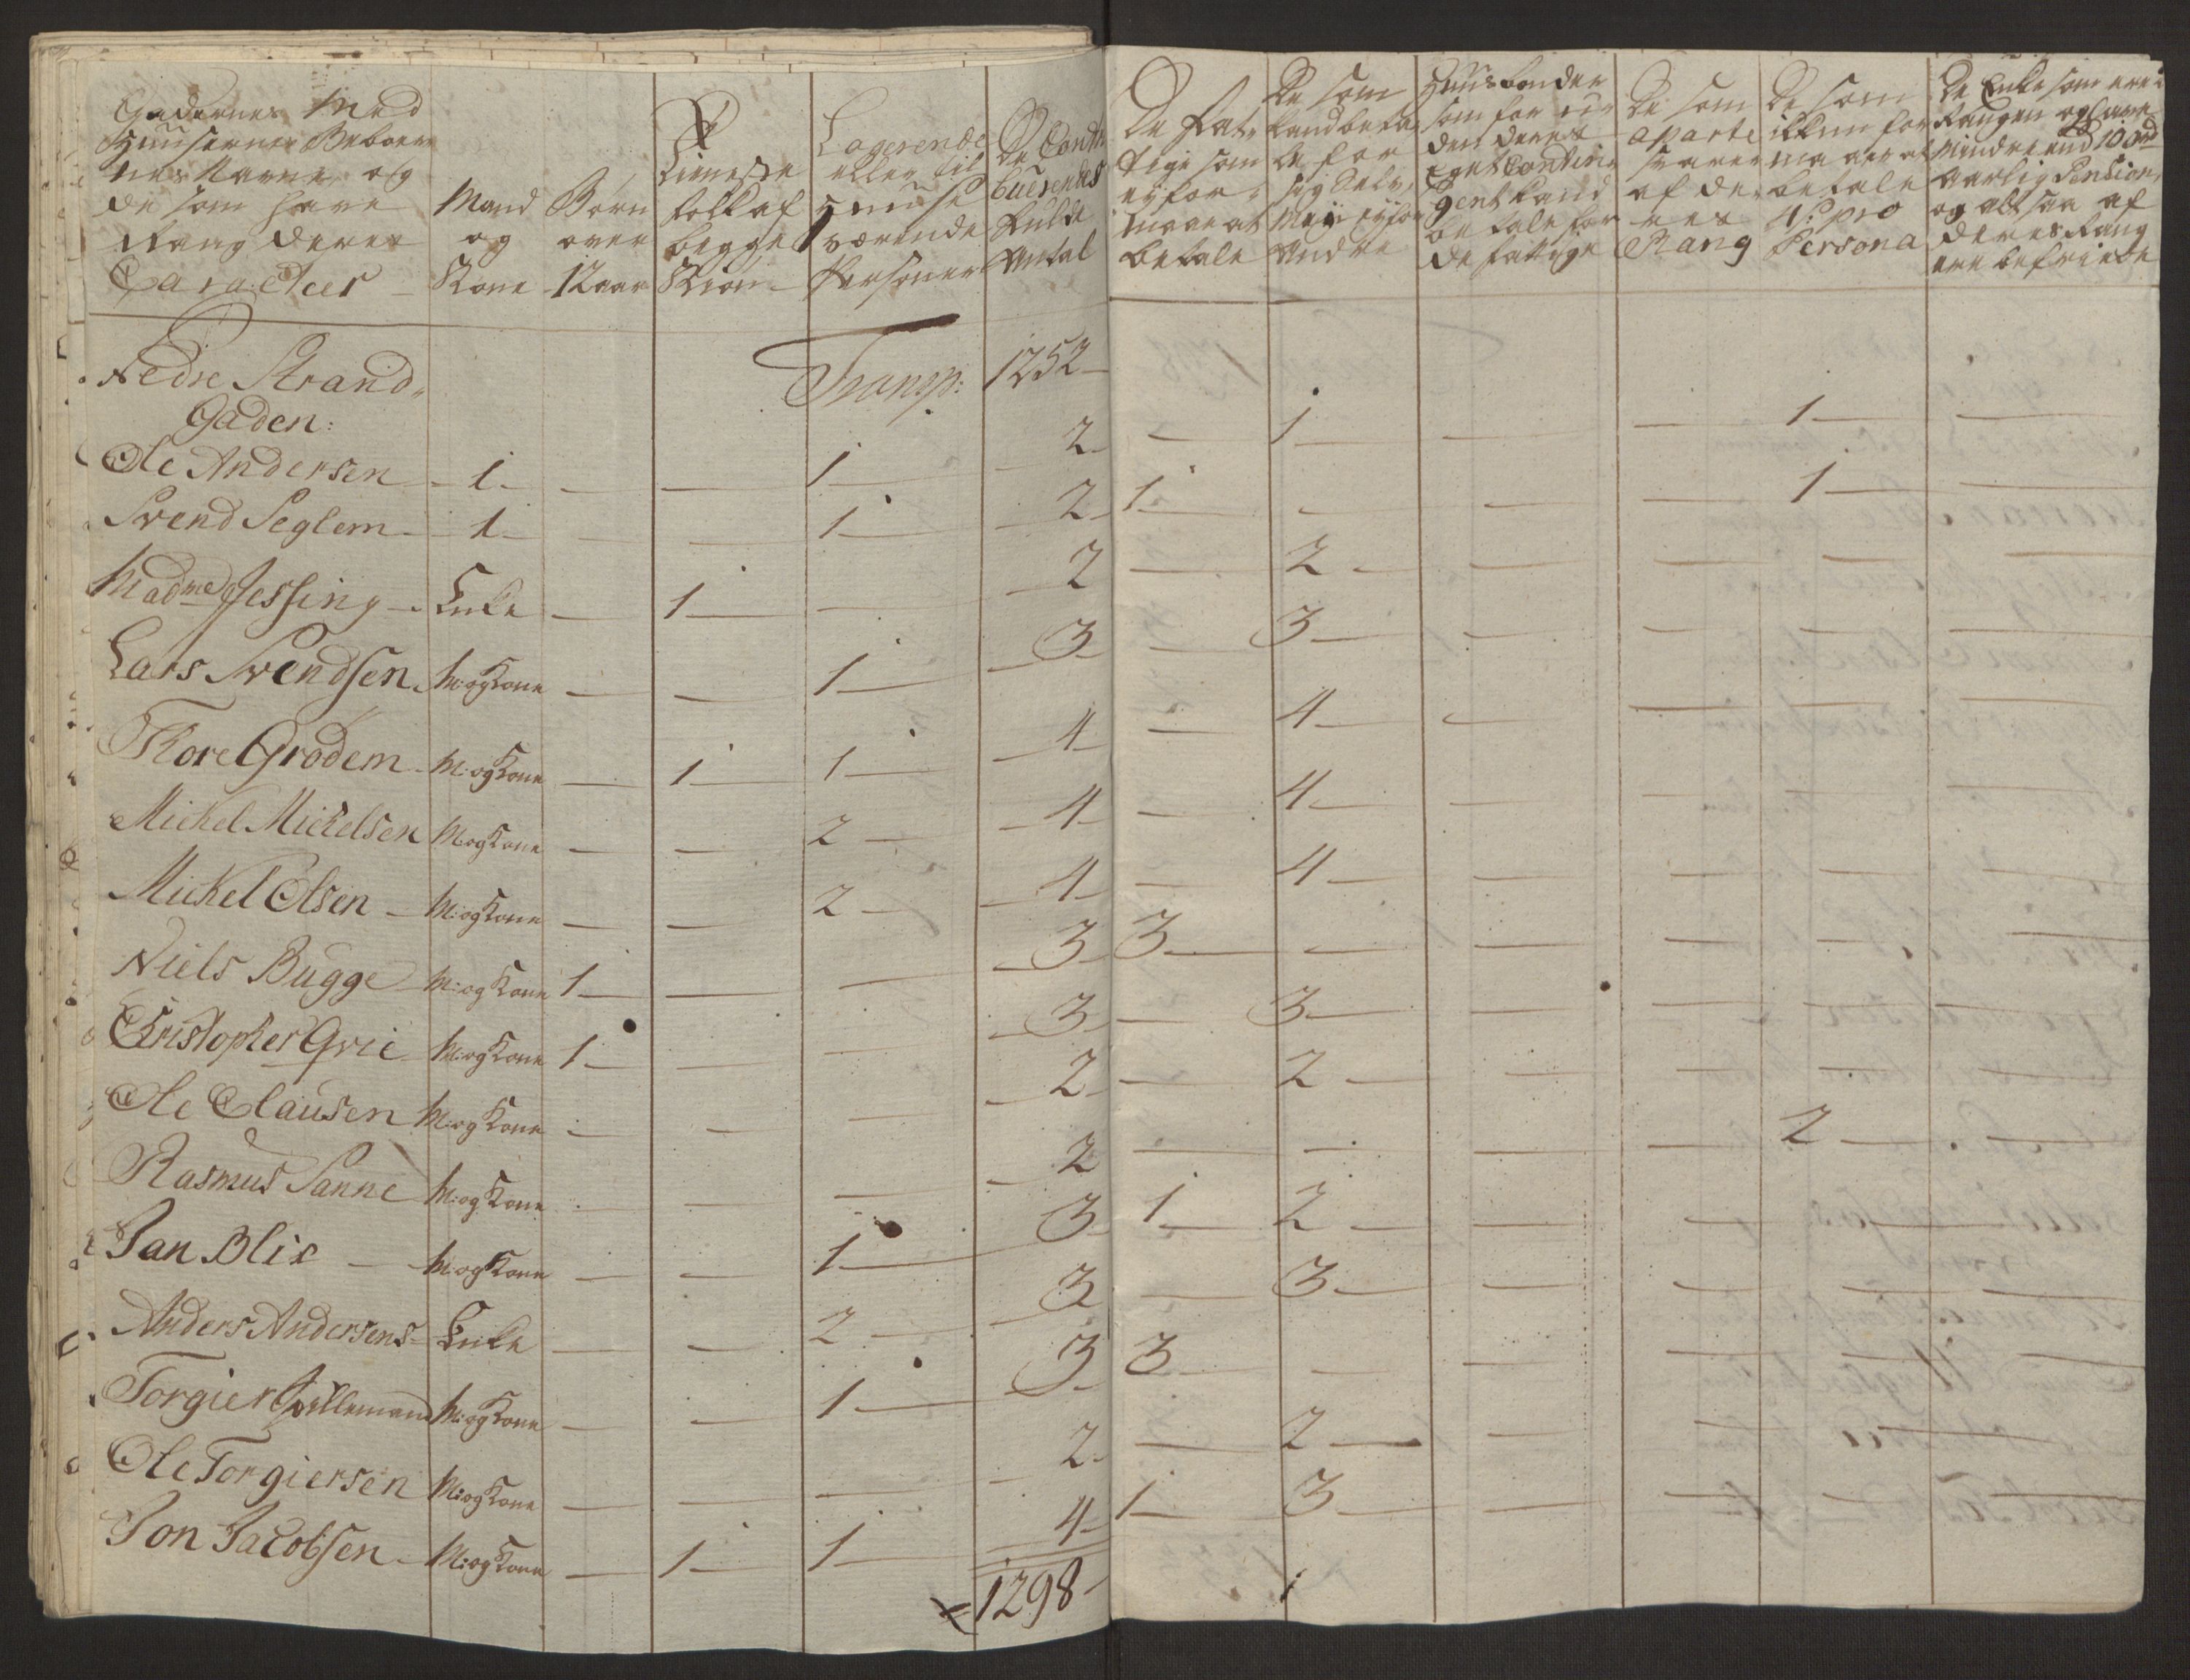 Gadernes Med
Huusernes Beboer
nes Navne og
de som have
Rang deres
Caracteer
Mand
og
Kone
Børn
over
12 aar
Tieneste
folk af
begge
Kiøn
Logerende
eller til
Huuse
værende
Personer
De Contri
buerendes
fulde
Antal
De Fat-
tige som
ey for-
maar at
betale
De som
kand beta-
le for
sig Selv,
Men ey for
Andre
Huusbonder
som for ud-
den deres
Eget Contin-
gent kand
betale for
de fattige
De som
aparte
svarer
af de-
res
Rang
De som
ikkun for
maaer at
betale
4 s. pro
Persona
De Enke som ere i
Rangen og have
Mindre end 100 rd
Aarlig Pension,
og altsaa af
deres Rang
ere befriede
Nedre Strand- Transp: 1252
Gaden:
Ole Andersen - 1 - - - 1 - 2 - - 1 - - - 1 - -
Svend Seglem - 1 - - - 1 - 2 - 1 - - - - 1 - -
Madme Jessing - Enke - 1 - - 2 - - 2 - - - - -
Lars Svendsen M: og Kone - - 1 - 3 - - 3 - - - - -
Thore Grødem M: og Kone - 1 - 1 - 4 - - 4 - - - - -
Michel Michelsen M: og Kone - - 2 - 4 - - 4 - - - - -
Michel Olsen - M: og Kone - - 2 - 4 - - 4 - - - - -
Niels Bugge M: og Kone 1 - - - 3 3 - - - - - -
Christopher Qvie M: og Kone 1 - - - 3 - - 3 - - - - -
Ole Clausen M: og Kone - - - 2 - - 2 - - - - -
Rasmus Sanne M: og Kone - - - 2 - - - - - 2 - -
Jan Blix - M: og Kone - - 1 - 3 - 1 - 2 - - - - -
Anders Andersens - Enke - - 2 - 3 - 3 - - - - -
Torgier Jyllemand M: og Kone - - 1 - 3 - 3 - - - - - -
Ole Torgiersen M: og Kone - - - 2 - - 2 - - - - -
Jon Jacobsen - M: og Kone - 1 - 1 - 4 - 1 - 3 - - - - -
1298